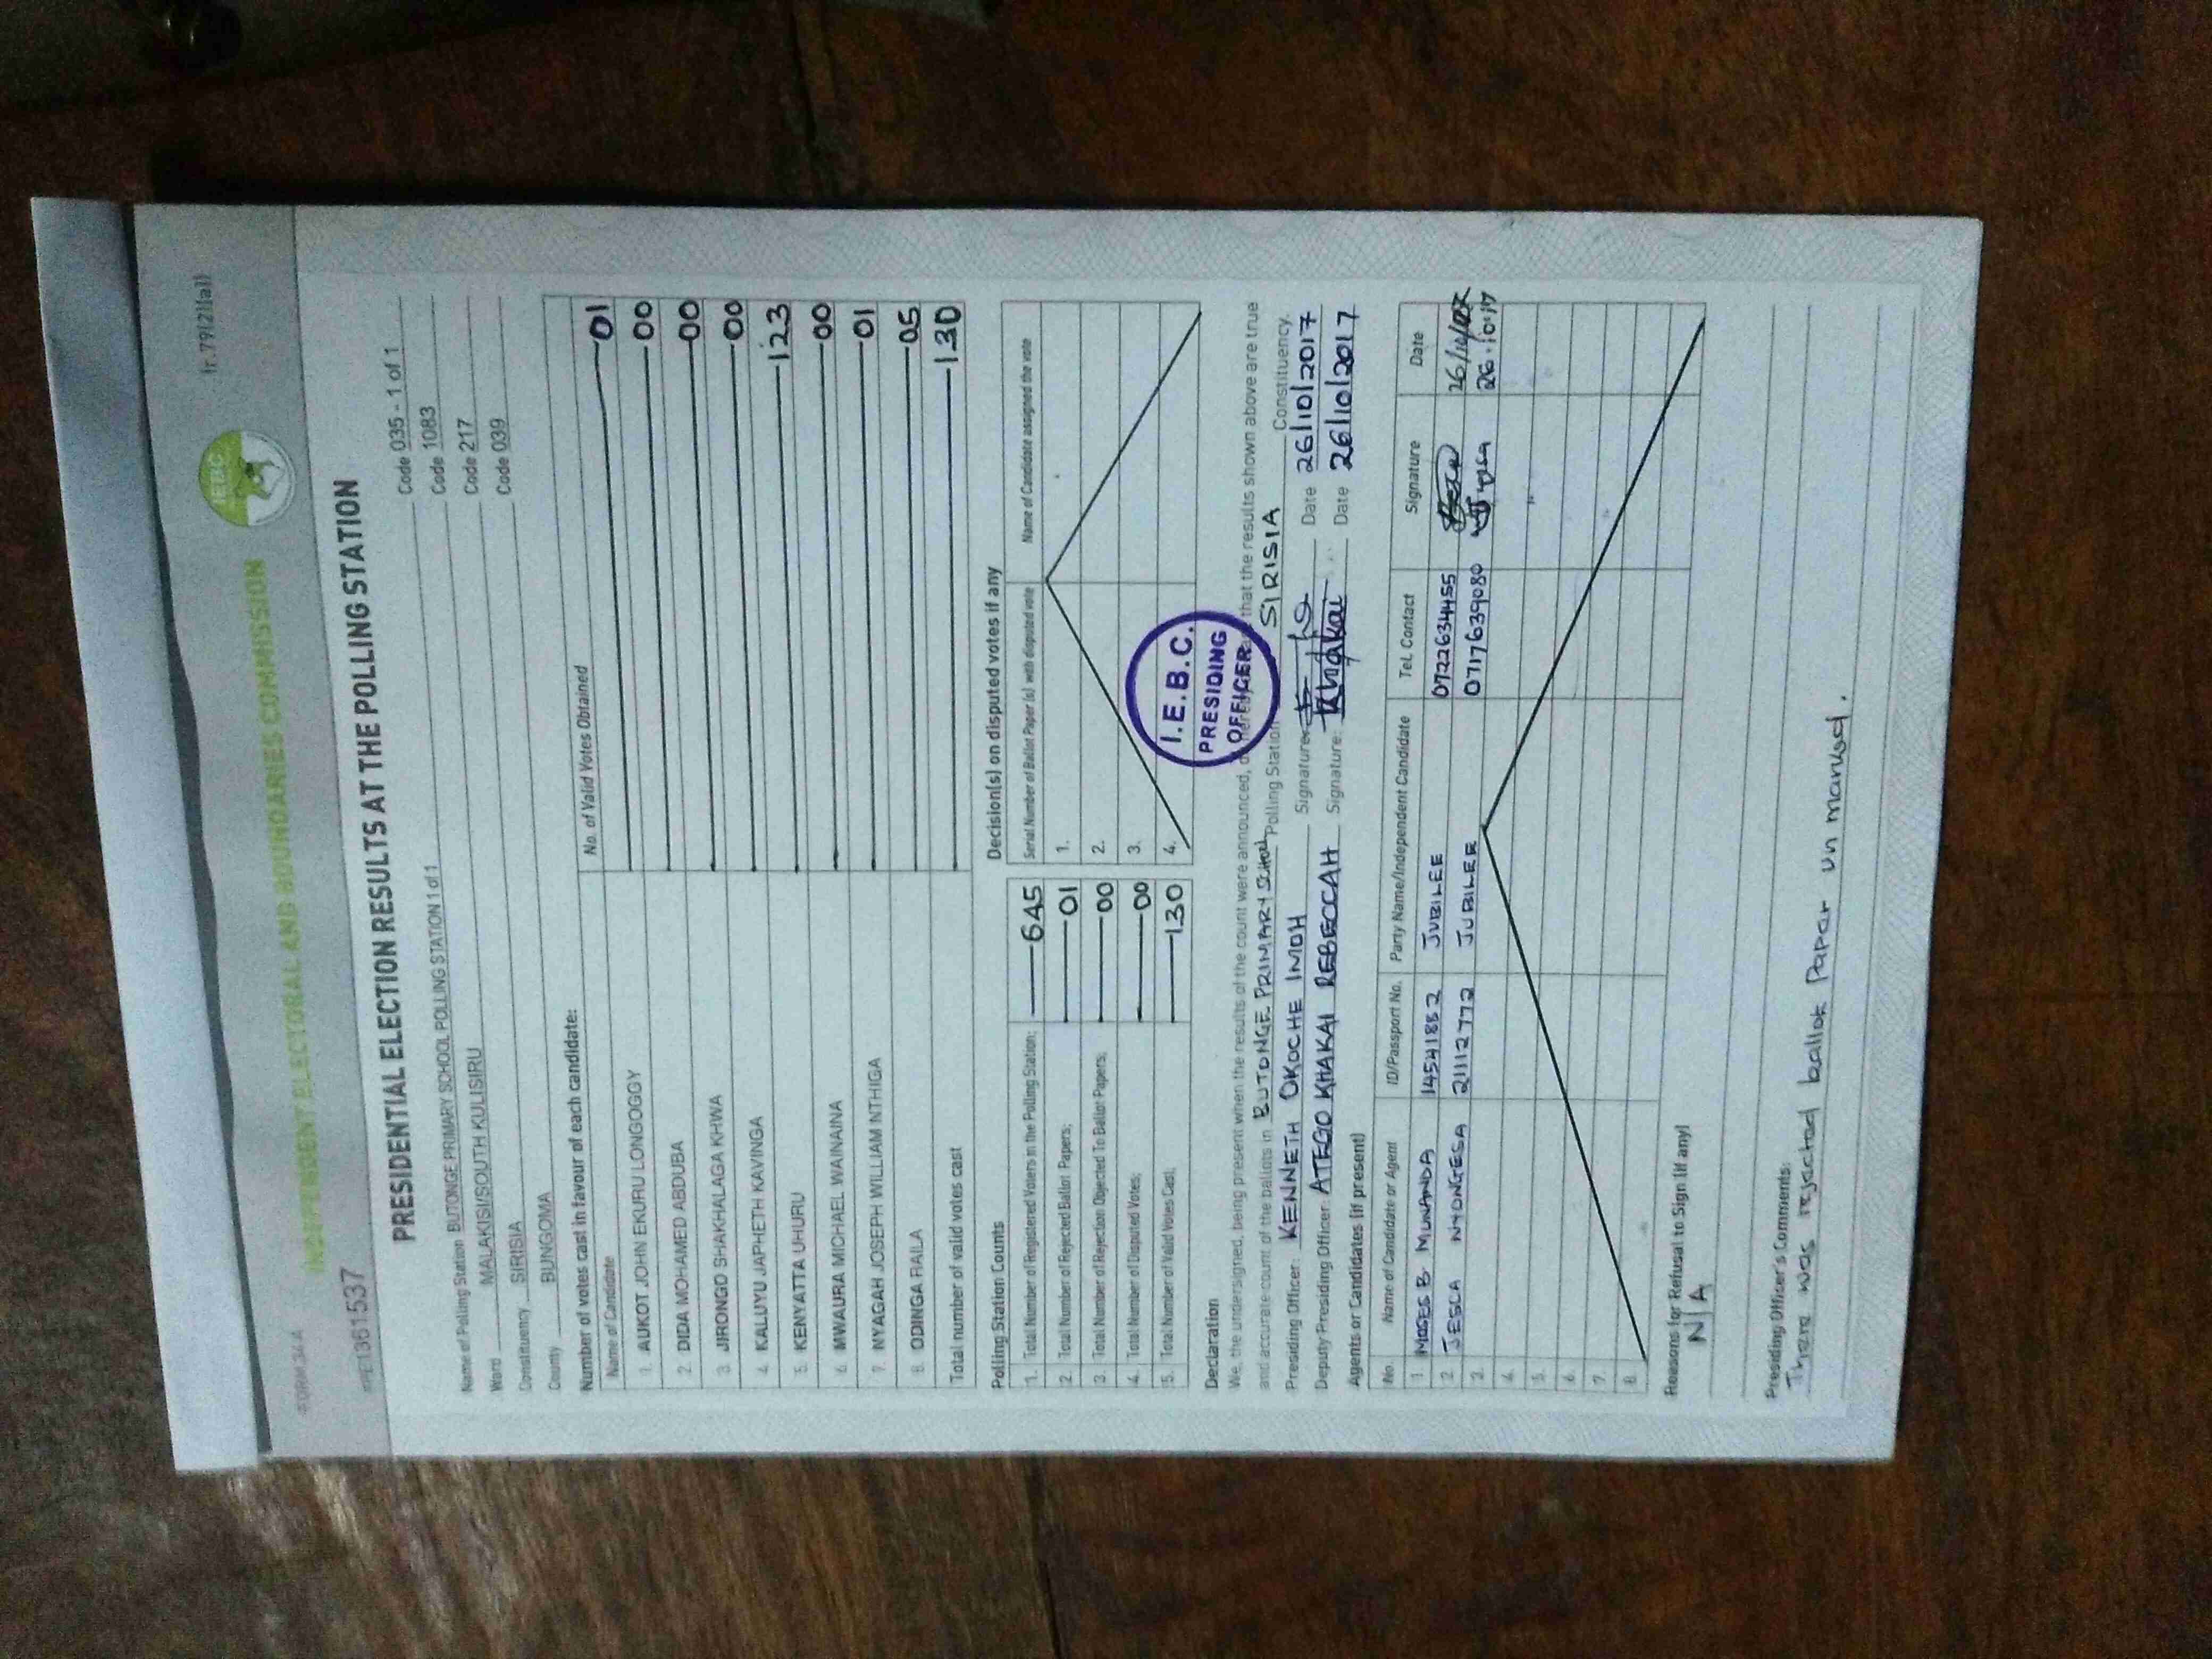 FORM 34A
(r.79(2)(a))
IEBC
INDEPENDENT ELECTORAL AND BOUNDARIES COMMISSION
1361537
PRESIDENTIAL ELECTION RESULTS AT THE POLLING STATION
Name of Polling Station BUTONGE PRIMARY SCHOOL POLLING STATION 1 of 1 Code 035 - 1 of 1
Ward MALAKISI/SOUTH KULISIRU Code 1083
Constituency SIRISIA Code 217
County BUNGOMA Code 039
Number of votes cast in favour of each candidate:
Name of Candidate No. of Valid Votes Obtained
1. AUKOT JOHN EKURU LONGOGGY 01
2. DIDA MOHAMED ABDUBA 00
3. JIRONGO SHAKHALAGA KHWA 00
4. KALUYU JAPHETH KAVINGA 00
5. KENYATTA UHURU 123
6. MWAURA MICHAEL WAINAINA 00
7. NYAGAH JOSEPH WILLIAM NTHIGA 01
8. ODINGA RAILA 05
Total number of valid votes cast 130
Polling Station Counts
1. Total Number of Registered Voters in the Polling Station; 645
2. Total Number of Rejected Ballot Papers; 01
3. Total Number of Rejection Objected To Ballot Papers; 00
4. Total Number of Disputed Votes; 00
5. Total Number of Valid Votes Cast; 130
Decision(s) on disputed votes if any
Serial Number of Ballot Paper (s) with disputed vote Name of Candidate assigned the vote
1.
2.
3.
4.
I.E.B.C.
PRESIDING
OFFICER
Declaration
We, the undersigned, being present when the results of the count were announced, that the results shown above are true
and accurate count of the ballots in BUTONGE PRIMARY SCHOOL Polling Station SIRISIA Constituency.
Presiding Officer: KENNETH OKOCHE IMOH Signature: Date 26/10/2017
Deputy Presiding Officer: ATEGO KHAKAI REBECCAH Signature: Khakai Date 26/10/2017
Agents or Candidates (if present)
No. Name of Candidate or Agent ID/Passport No. Party Name/Independent Candidate Tel. Contact Signature Date
1 MOSES B MUNANDA 14541882 JUBILEE 0722634455 26/10/
2. JESCA NYONGESA 21112772 JUBILEE 0717639080 26.10.17
3.
4.
5.
6.
7.
8.
Reasons for Refusal to Sign (if any)
N/A
Presiding Officer's Comments:
There was rejected ballot papar un marused.